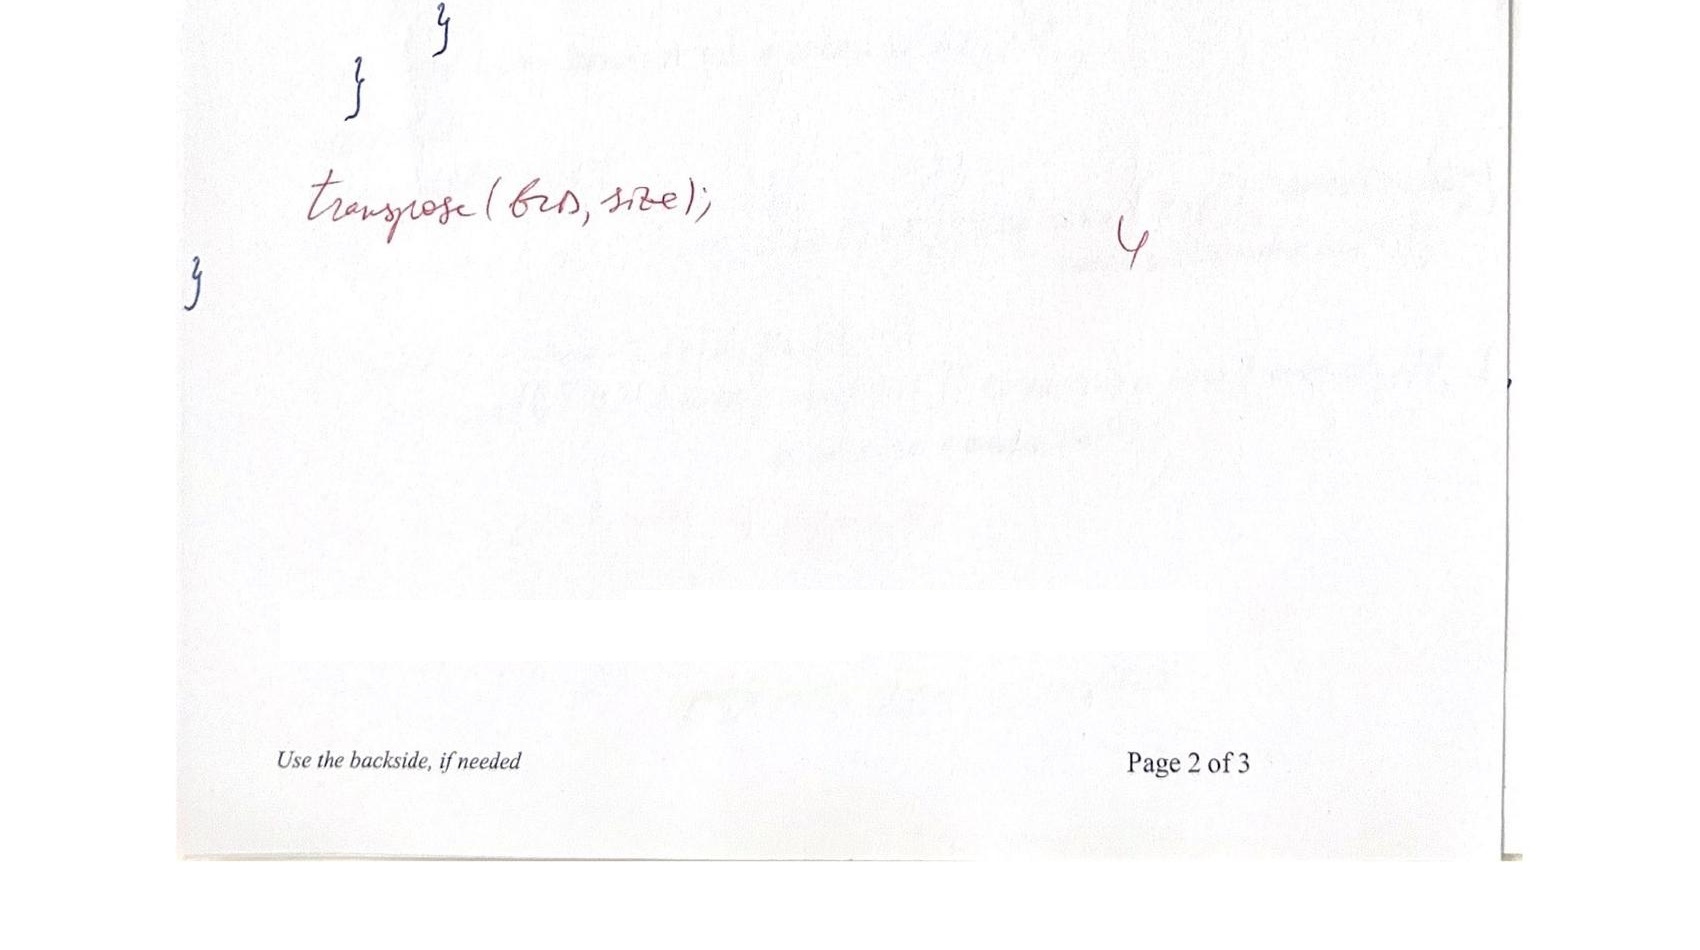 }
}
transpose(grid, size);
4
}
Use the backside, if needed
Page 2 of 3